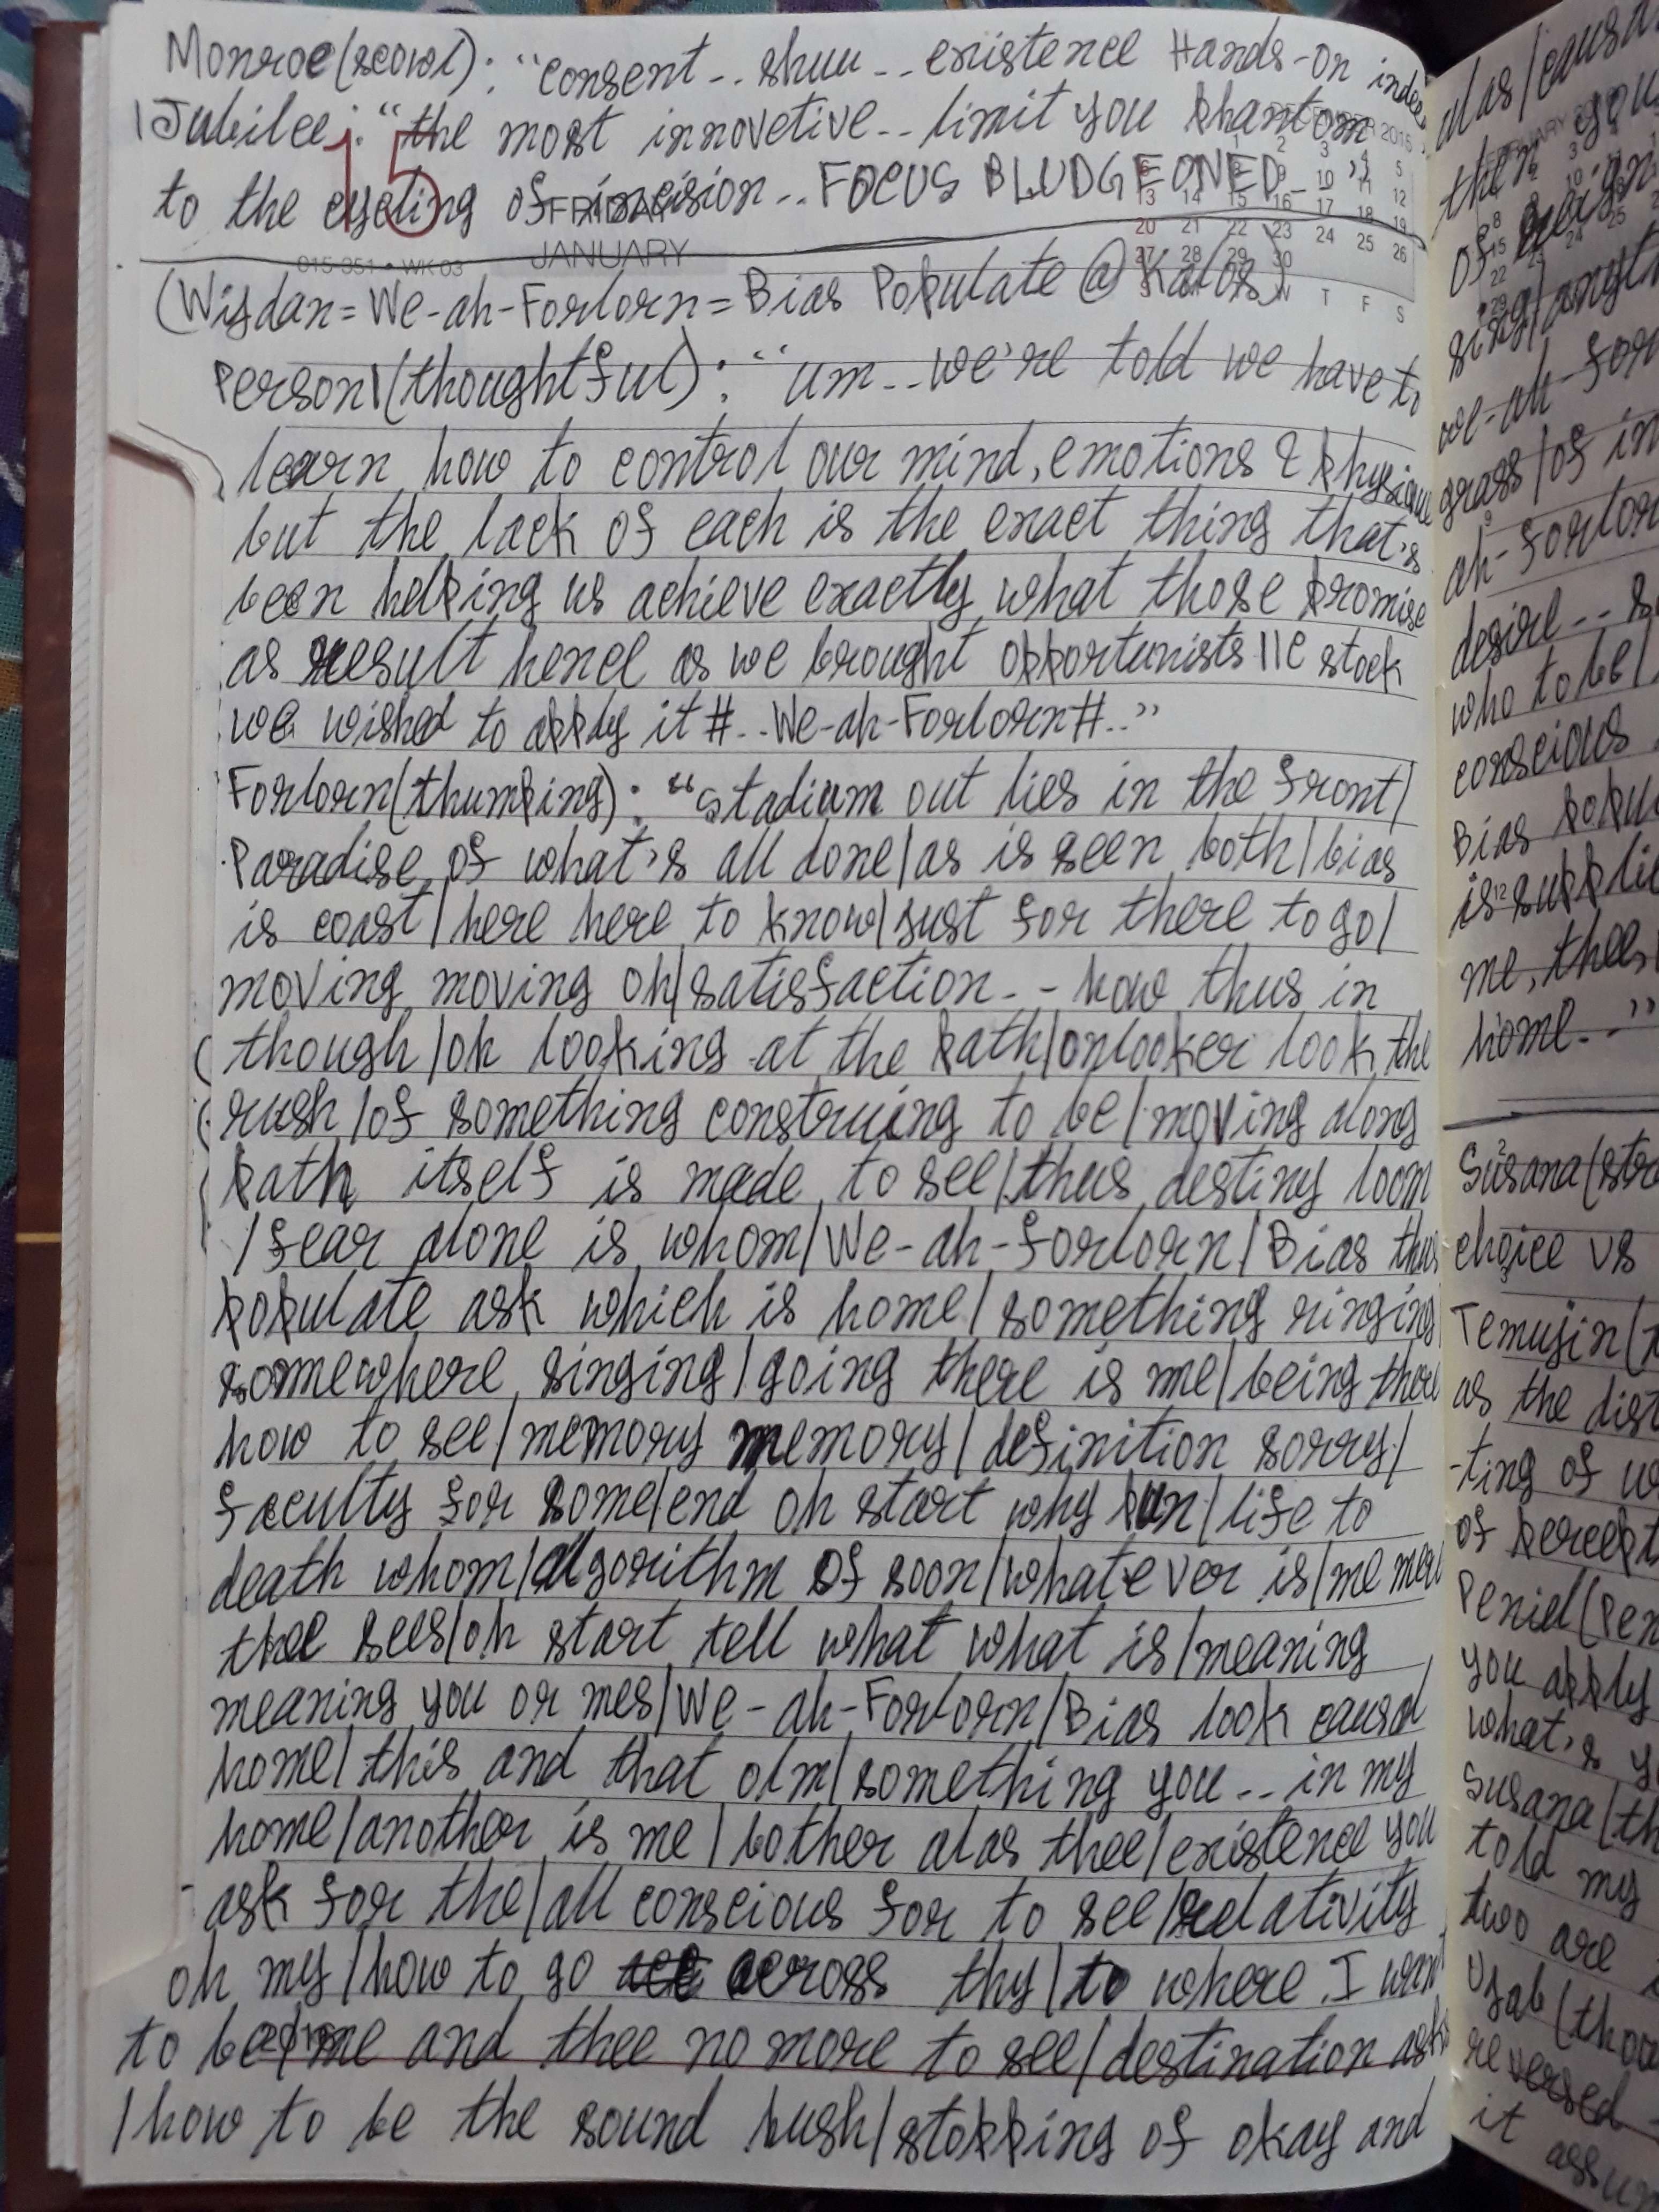 Monroe(scowl): "consent.. shuu.. existence Hands-On indee
Jubilee: "the most innovetive.. limit you phantom
to the cycling of incision.. FOCUS BLUDGEONED.."
15
FRIDAY
015-351 • WK 03 JANUARY
(Wisdan=We-ah-Forlorn=Bias Populate @ Kalos)
Person1(thoughtful): "um.. we're told we have to
learn how to control our mind, emotions & physique
but the lack of each is the exact thing that's
been helping us achieve exactly what those promise
as result hence as we brought opportunists' stock
we wished to apply it #..We-ah-Forlorn#.."
Forlorn(thumping): "stadium out lies in the front/
Paradise of what's all done/as is seen both/bias
is coast/here here to know/just for there to go/
moving moving oh/satisfaction.. how thus in
though/oh looking at the path/onlooker look the
rush/of something construing to be/moving along
path itself is made to see/thus destiny loom
/fear alone is whom/We-ah-forlorn/Bias thus
populate ask which is home/something ringing
somewhere singing/going there is me/being there
how to see/memory memory/definition sorry/
faculty for some/end oh start why pun/life to
death whom/algorithm of soon/whatever is/me mere
thee sees/oh start tell what what is/meaning
meaning you or mes/We-ah-Forlorn/Bias look causal
home/this and that olm/something you.. in my
home/another is me/bother alas thee/existence you
ask for the/all conscious for to see/relativity
oh my/how to go across thy/to where I want
to be/me and thee no more to see/destination asks
/how to be the sound hush/stopping of okay and
alas/causa
then you
of
sing/
we-ah-forl
grass/of in
ah-forlorn
desire..
who to be/
conscious
Bias popul
is supplie
me, thee
home.."
Susana(str
choice vs
Temujin(
as the dist
-ting of w
of percept
Peniel(Pen
you apply
what's y
Susana(th
told my
two are
Ujab(thou
reversed
it assum